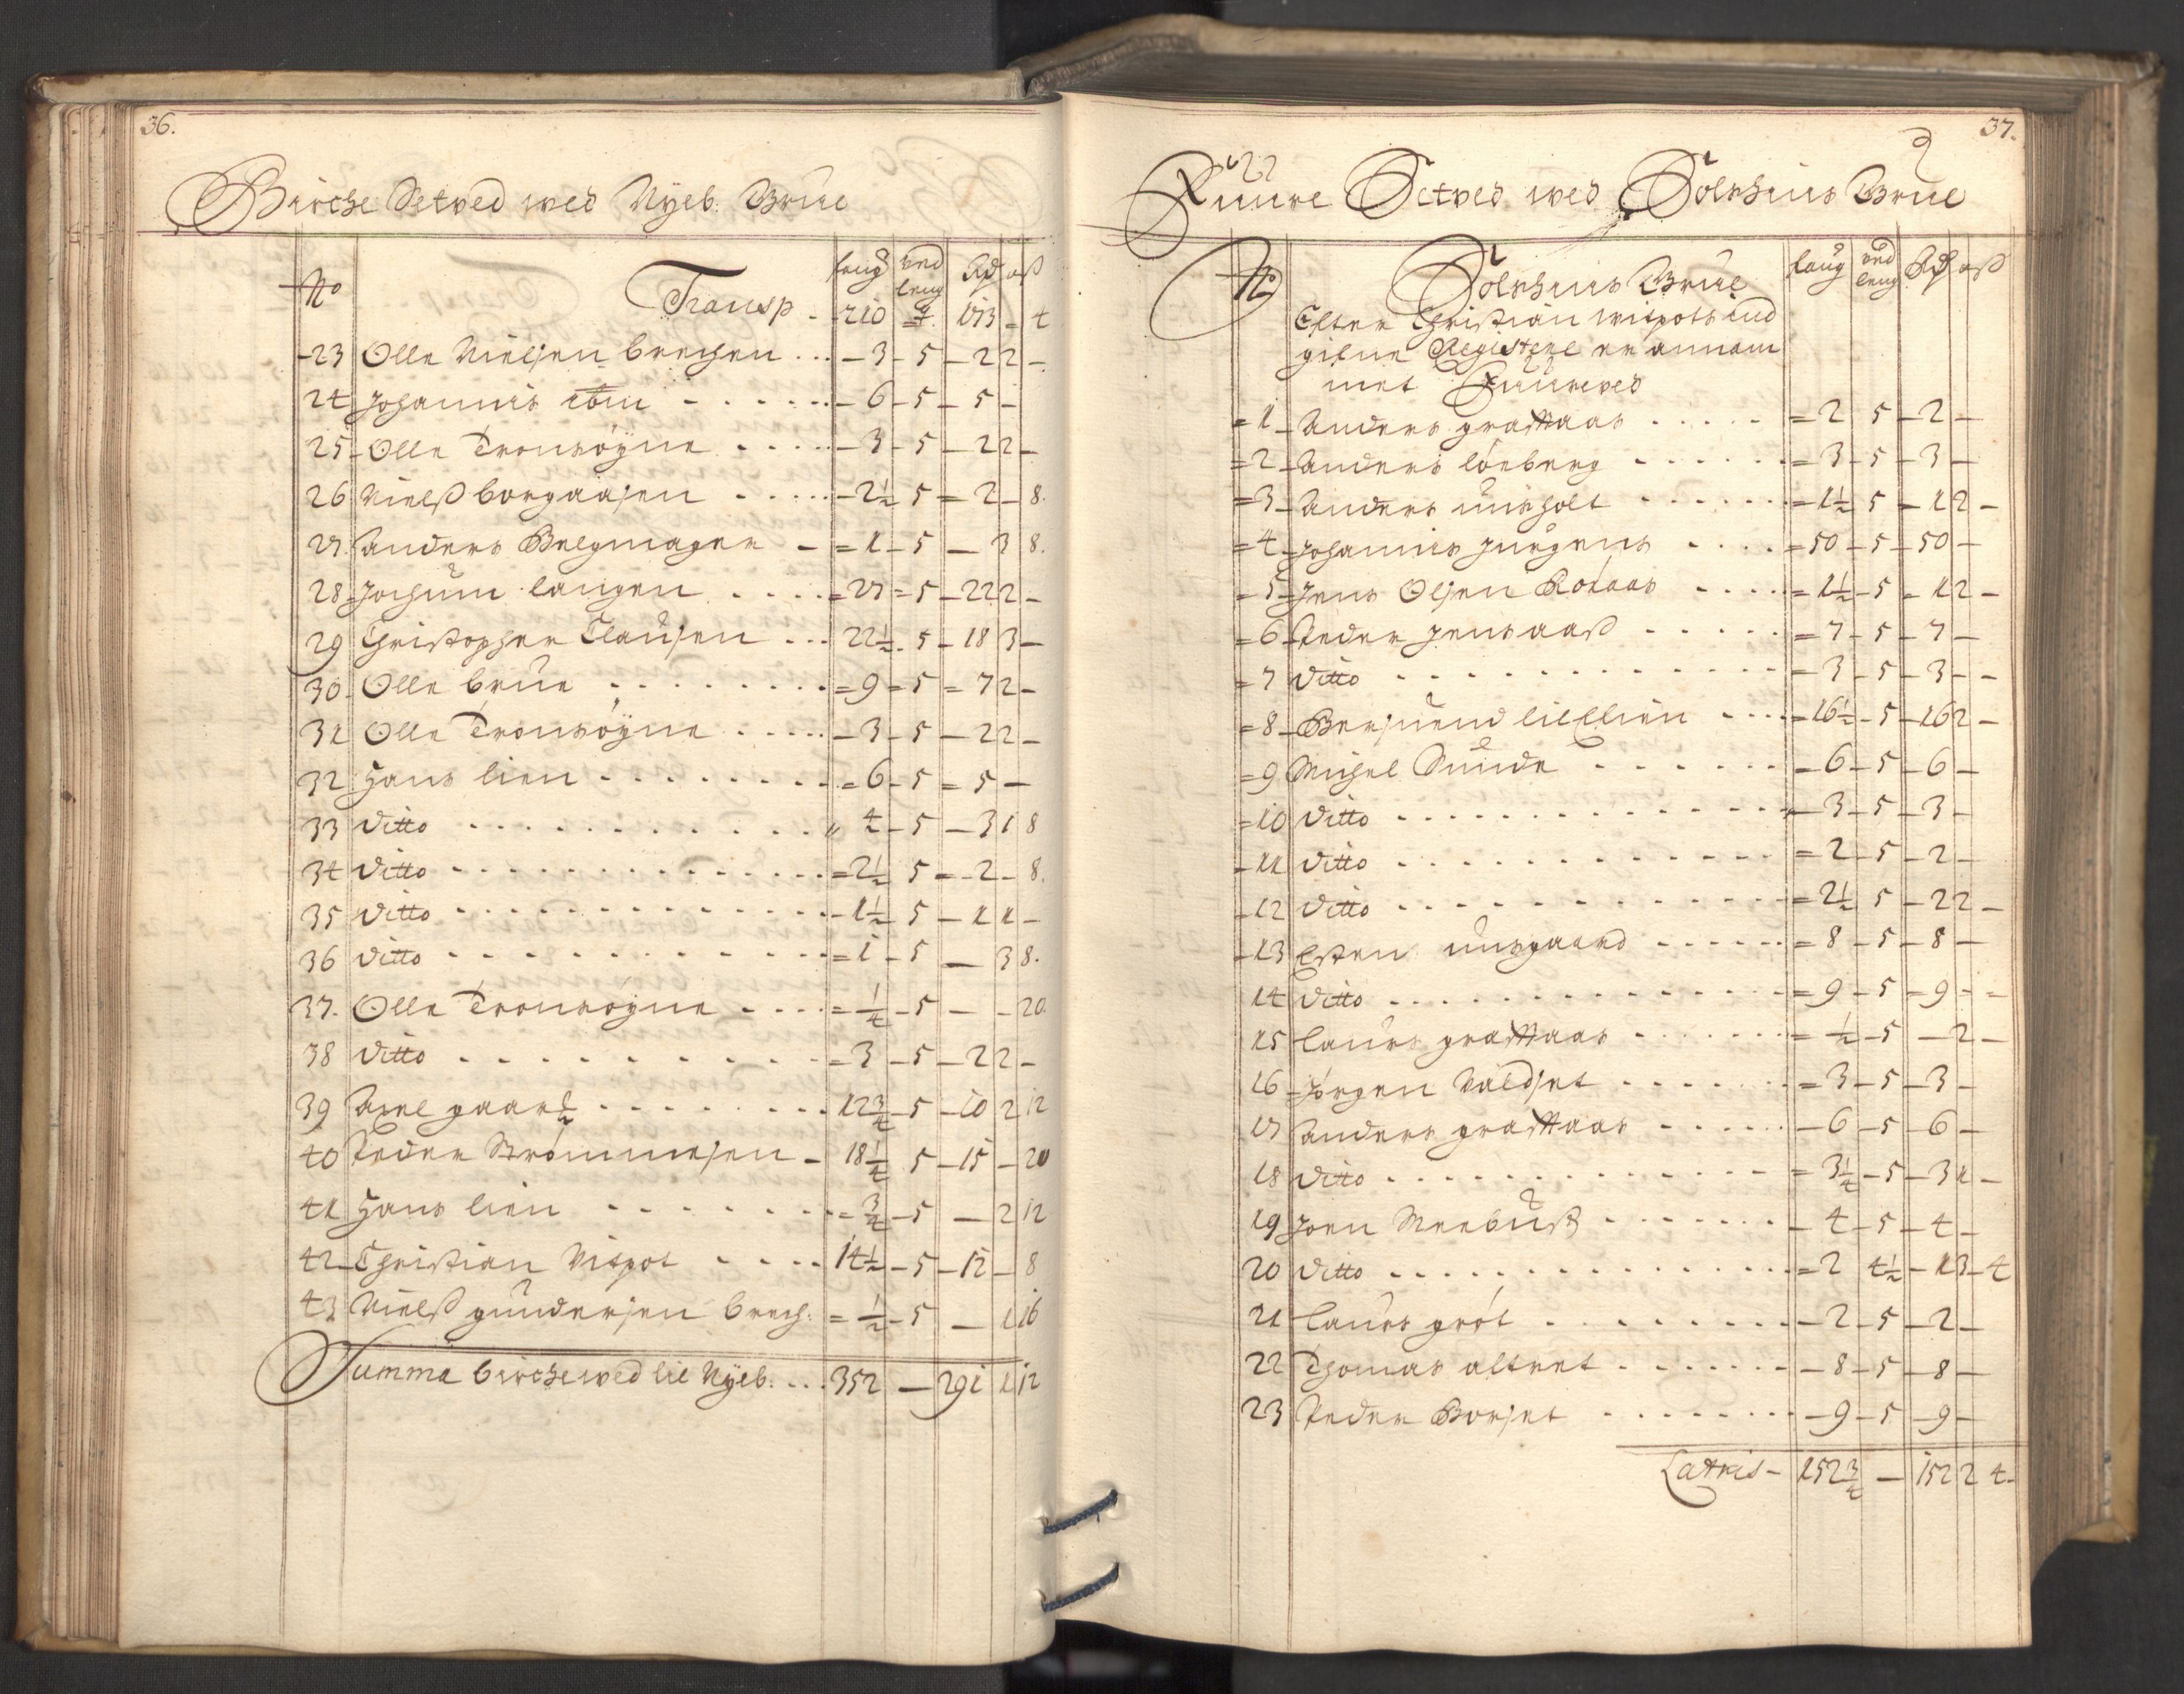 36.
Birche Setved wed Nyeb: Brue
No Transp - faug ved leng Rd ort ß
210 = 4. 173 - 4
23 Olle Nielsen brechen ... - 3 - 5 - 2 2 -
24 Johannis ibm - 6 - 5 - 5 -
25 Olle Tronsøyne - 3 - 5 - 2 2 -
26 Nielß borgaasen - 2½ 5 = 2 - 8.
27. Anders Belgmager = 1 - 5 - 3 8.
28 Jochum langen = 27 = 5 - 22 2 -
29 Christopher Clausen ... 22½ - 5 - 18 3 -
30 Olle brue = 9 = 5 = 7 2 -
31 Olle Tronsøyne - 3 - 5 - 2 2 -
32 Hans lien = 6 - 5 = 5 -
33 ditto " 4 - 5 - 3 1 8
34 ditto = 2½ 5 = 2 - 8.
35 ditto - 1½ 5 - 1 1 -
36 ditto = 1 - 5 - 3 8.
37. Olle Tronsøyne = ¼ - 5 - - 20.
38 ditto = 3 - 5 - 2 2 -
39 Axel gaard 12¾ - 5 - 10 2 12
40 Peder Strømmesen - 18¼ 5 - 15 - 20
41 Hans lien = ¾ - 5 - 2 12
42 Christian Vitpot 14½ - 5 - 12 - 8
43 Nielß gundersen brech: = ½ - 5 - 1 16
Summa birchewed til Nyeb: ... 352 - 291 1 12
37.
Fuure Setved wed Tolshuus Brue
No Tolshuus Brue faug ved leng Rd ort ß
Efter Christian witpots ind
gifne Registere er annam
met Fuureved
= 1 Anders graffaas = 2 5 - 2 -
= 2 Anders lønberg = 3 - 5 - 3 -
= 3 Anders uusholt = 1½ 5 - 1 2 -
= 4 Johannis Jurgens = 50 - 5 - 50 -
= 5 Jens Olsen Kotaas = 1½ - 5 - 1 2 -
= 6 Peder Jensaaß = 7 - 5 - 7 -
= 7 ditto = 3 - 5 - 3 - -
= 8 Bersuend lilElien = 16½ - 5 - 16 2 -
= 9 Michel Sunde - 6 - 5 - 6 -
= 10 ditto - 3 - 5 - 3 -
- 11 ditto = 2 - 5 - 2 -
- 12 ditto = 2½ 5 - 2 2 -
- 13 Esten uusgaard = 8 - 5 - 8 -
14 ditto = 9 - 5 = 9 - -
15 Laurs graffaas = ½ - 5 - 2 -
16 Jørgen Valdset = 3 - 5 - 3 -
17 Anders graffaas - 6 - 5 - 6 -
18 ditto = 3¼ - 5 - 3 1 -
19 Joen Meebuß - 4 - 5 - 4 -
20 ditto = 2 4½ - 1 3 - 4
21 Laurs grøt - 2 - 5 - 2 -
22 Thomas altret - 8 - 5 - 8 -
23 Peder Borset - 9 - 5 - 9 -
Lateris - 152¾ - 152 2 4 -